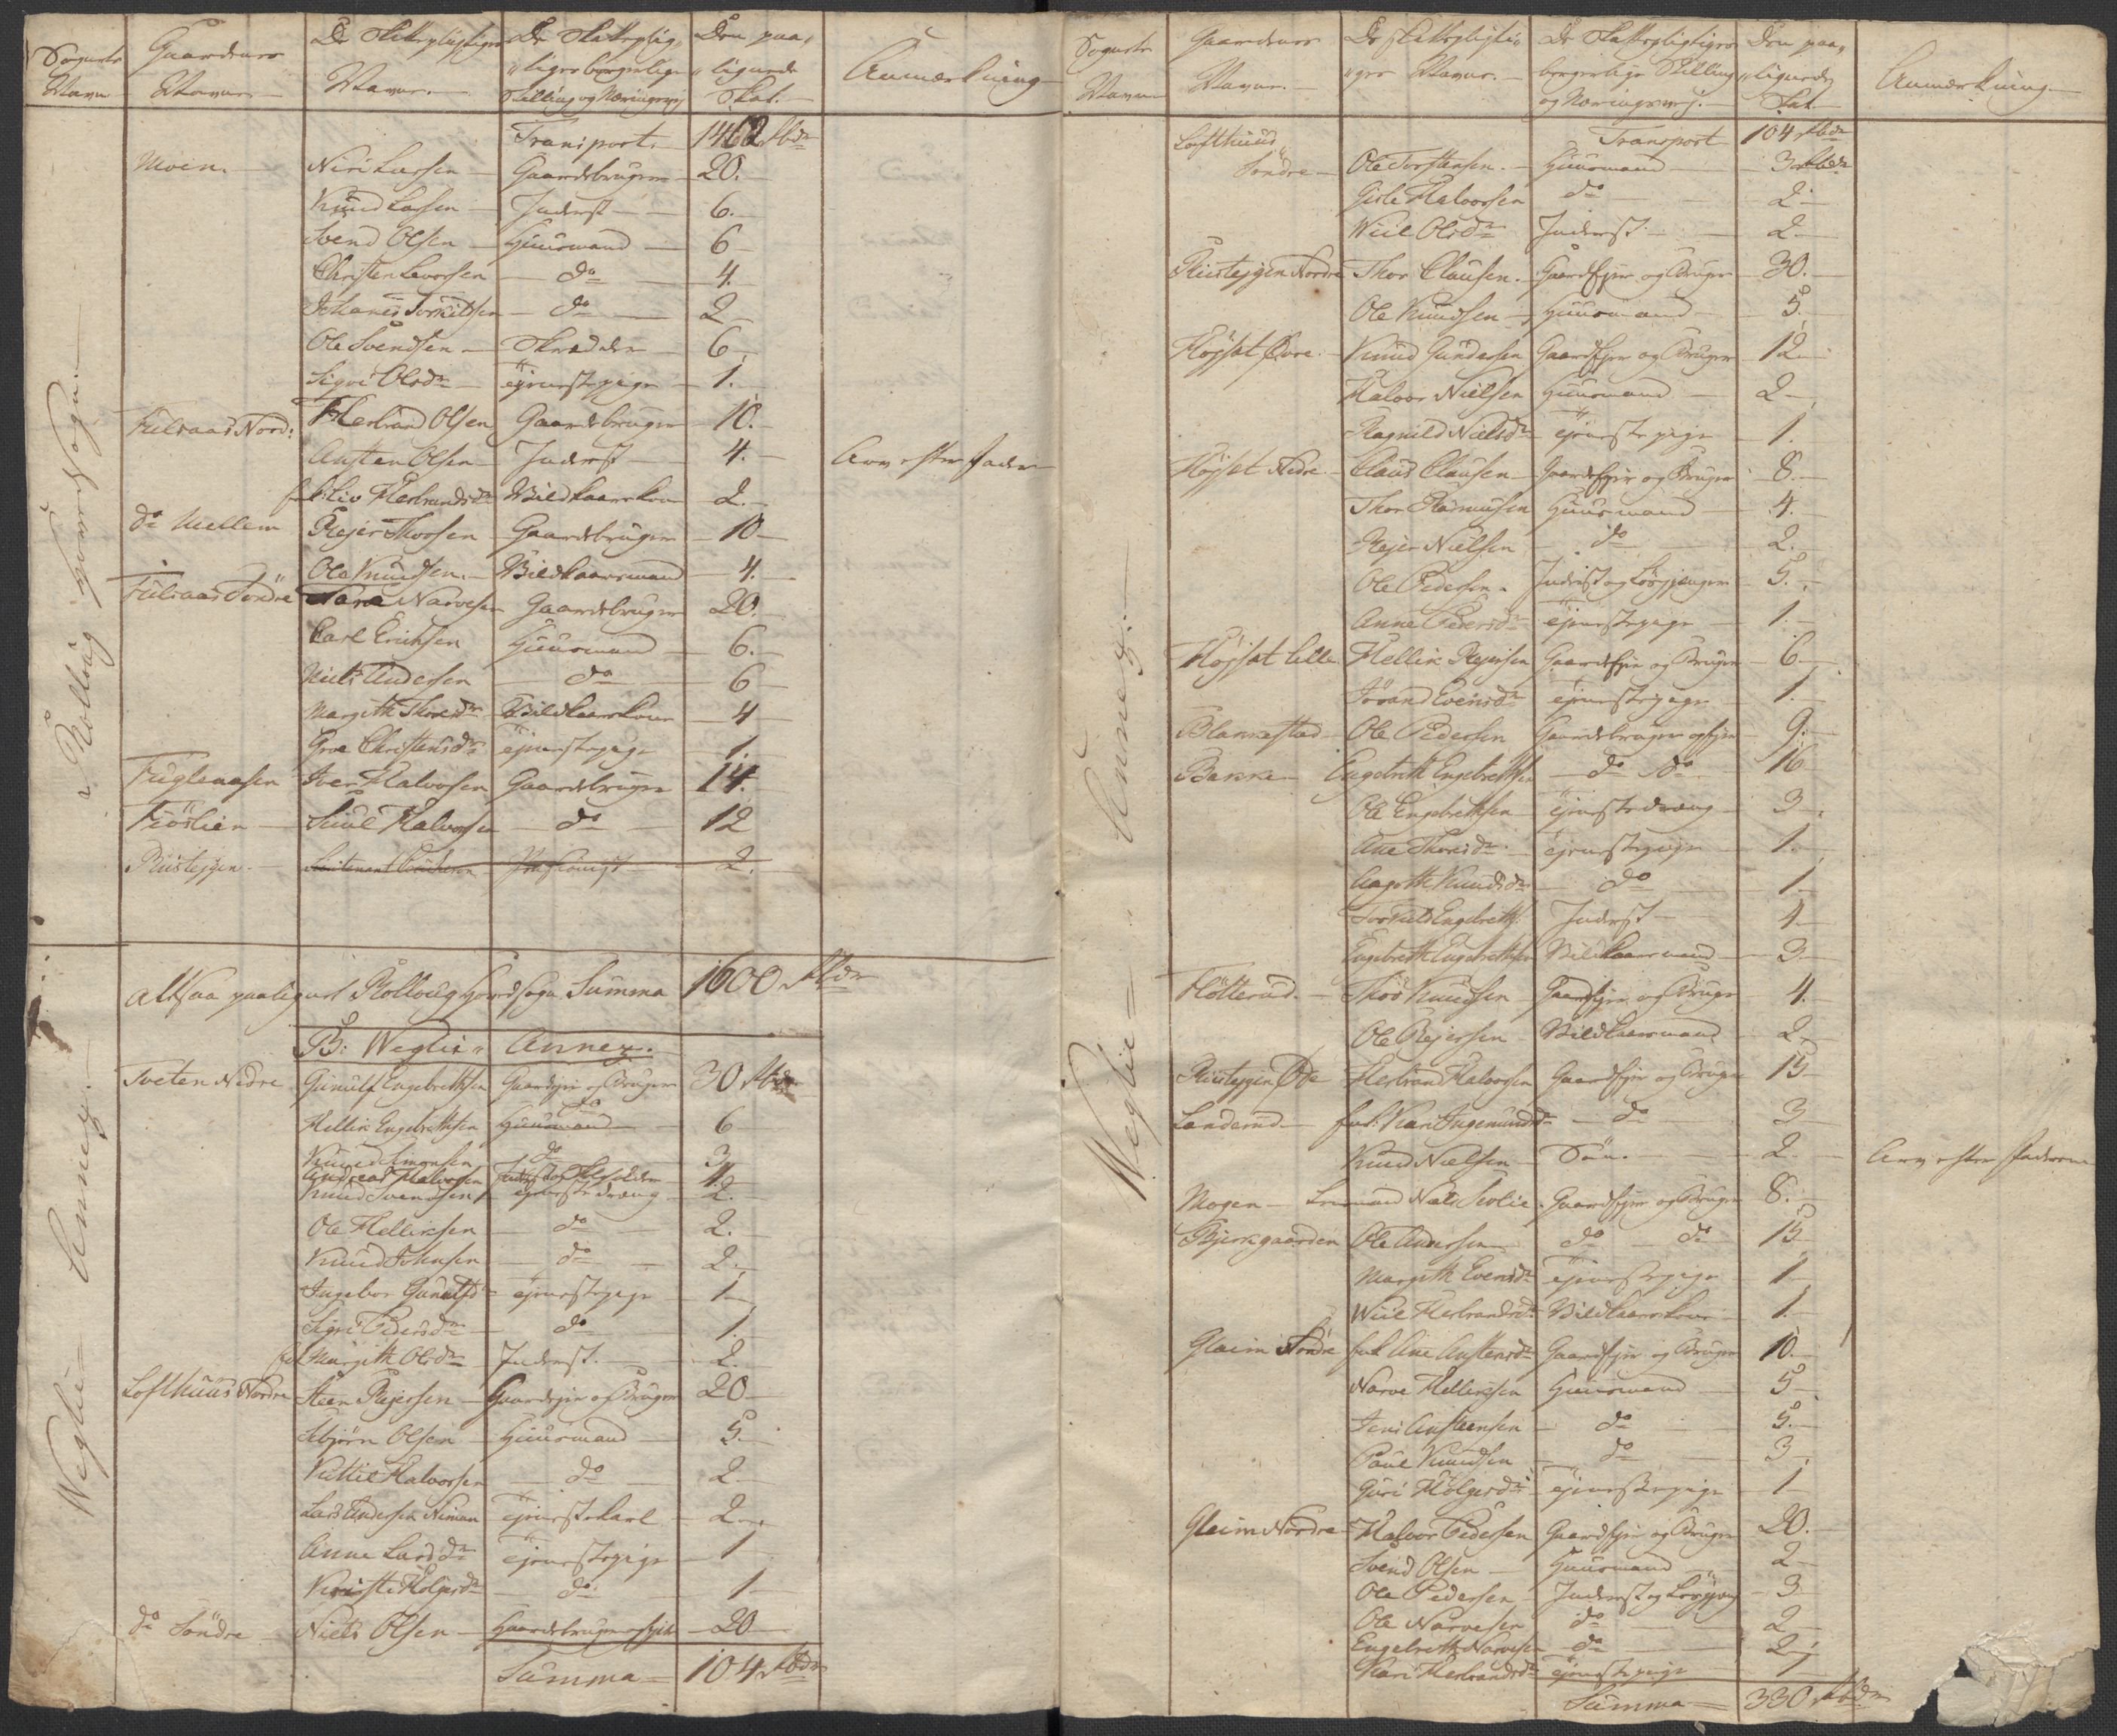 Sognets Navn | Gaardenes Navne. | De Skattepligtiges Navne. | De Skattepligtiges borgerlige Stilling og Næringsvej | Den paalignede Skat. | Anmærkning
Rolloug Hovedsogn.
Transport. 1462 Rbdr
Moen. Niri Larsen Gaardebruger 20.
Knud Larsen Inderst 6.
Svend Olsen Huusmand 6
Christen Levorsen do 4.
Johanes Torkildsen do 2
Ole Svendsen Skrædder 6
Sigri Olsdr Tjenestepige 1.
Fulsaas Nord: Herbrand Olsen Gaardebruger 10.
Austen Olsen Inderst 4. Arv efter Fader
Liv Herbrandsdr Vildkaarskone 2.
do Mellem Rejer Thorsen Gaardebruger 10
Ole Knudsen. Vildkaarsmand 4.
Fulsaas Søndre Narve Narvesen Gaardebruger 20.
Carl Erichsen Huusmand 6.
Niels Andersen do 6
Margith Thoresdr Vildkaarskone 4
Groe Christensdr Tjenestepige 1.
Fuglenesen Iver Halvorsen Gaardebruger 14.
Frøslien Juul Halvorsen do 12
Rustejgen. Lieutenant 2.
altsaa paalignet Rolloug Hovedsogn Summa 1600 Rbdr
B: Weglie Annex.
Weglie Annex.
Tveten Nedre Gunulf Engebrethsen Gaardejer og Bruger 30 Rbdr
Hellik Engebrethsen Huusmand do 6
Knud Simensen do 3
Andreas Halvorsen Inderst og 4.
Knud Svendsen Tjenestedræng 2.
Ole Helliksen do 2.
Knud Johnsen do 2.
Ingebor Gunulfsdr Tjenestepige 1
Sigri Pedersdr do 1.
Margith Olsdr Inderst. 2.
Lofthuus Nordre Steen Rejersen Gaardejer og Bruger 20
Asbjørn Olsen Huusmand 5.
Kittil Halvorsen do 2
Lars Andersen Neman Tjenestekarl 2
Anne Larsdr Tjenestepige 1
Kirsti Holgersdr do 1
do Søndre Niels Olsen Gaardebruger og 20
Summa 104 Rbdr
Sognets Navn | Gaardenes Navne. | De skattepligtiges Navne. | De Skattepligtiges borgerlige Stilling og Næringsvej. | Den paalignede Skat. | Anmærkning.
Weglie Annex.
Lofthuus Transport 104 Rbdr
Søndre Ole Torstensen. Huusmand 3 Rbdr
Gisle Halvorsen do 2
Wiil Olsdr Inderst 2
Rustejgen Nordre Thor Clausen. Gaardejer og Bruger 30.
Ole Knudsen Huusmand 5.
Højset Øvre. Knud Gundersen Gaardejer og Bruger 12
Halvor Nielsen Huusmand 2
Ragnild Nielsdr Tjenestepige 1.
Højset Nedre. Claus Clausen Gaardejer og Bruger 8.
Thor Rasmusen Huusmand 4.
Rejer Nielsen do 2.
Ole Pedersen. Inderst og Løsgjænger 5.
Anne Pedersdr Tjenestepige 1.
Højset lille Hellik Rejersen Gaardejer og Bruger 6
Jørand Evensdr Tjenestepige 1.
Blakkestad Ole Pedersen Gaardebruger og Ejer 9.
Bakke Engebreth Engebrethsen do do 16
Ole Engebrethsen Tjenestedræng 3
Ane Thoresdr Tjenestepige 1.
Aagoth Knudsdr do 1.
Torkild Engebreths. Inderst 4
Engebreth Engebrethsen Vildkaarsmand 3
Fløtterud. Thor Knudsen Gaardejer og Bruger 4.
Ole Rejersen Vildkaarsmand 2
Rustejgen Øde Herbrand Halvorsen Gaardejer og Bruger 15
Landerud. Kari Ingemundsdr do 3
Knud Nielsen Søn. 2. Arv efter Faderen
Mogen Lensmand Niels Juvlie Gaardejer og Bruger 8.
Bjerkgaarden Ole Andersen do do 15
Margith Evensdr Tjenestepige 1
Wiil Herbrandsdr Vildkaarskone 1.
Glaim Søndre Ane Austensdr Gaardejer og Bruger 10.
Narve Helliksen Huusmand 5
Jens Austensen do 5.
Paul Knudsen do 3
Guri Holgersdr Tjenestepige 1
Glaim Nordre Halvor Pedersen Gaardejer og Bruger 20.
Svend Olsen Huusmand 2
Ole Pedersen Inderst og Løsgjæng 3
Ole Narvesen do 2
Engebreth Narvesen do 2
Kari Herbrandsdr Tjenestepige 1
Summa 330 Rbdr